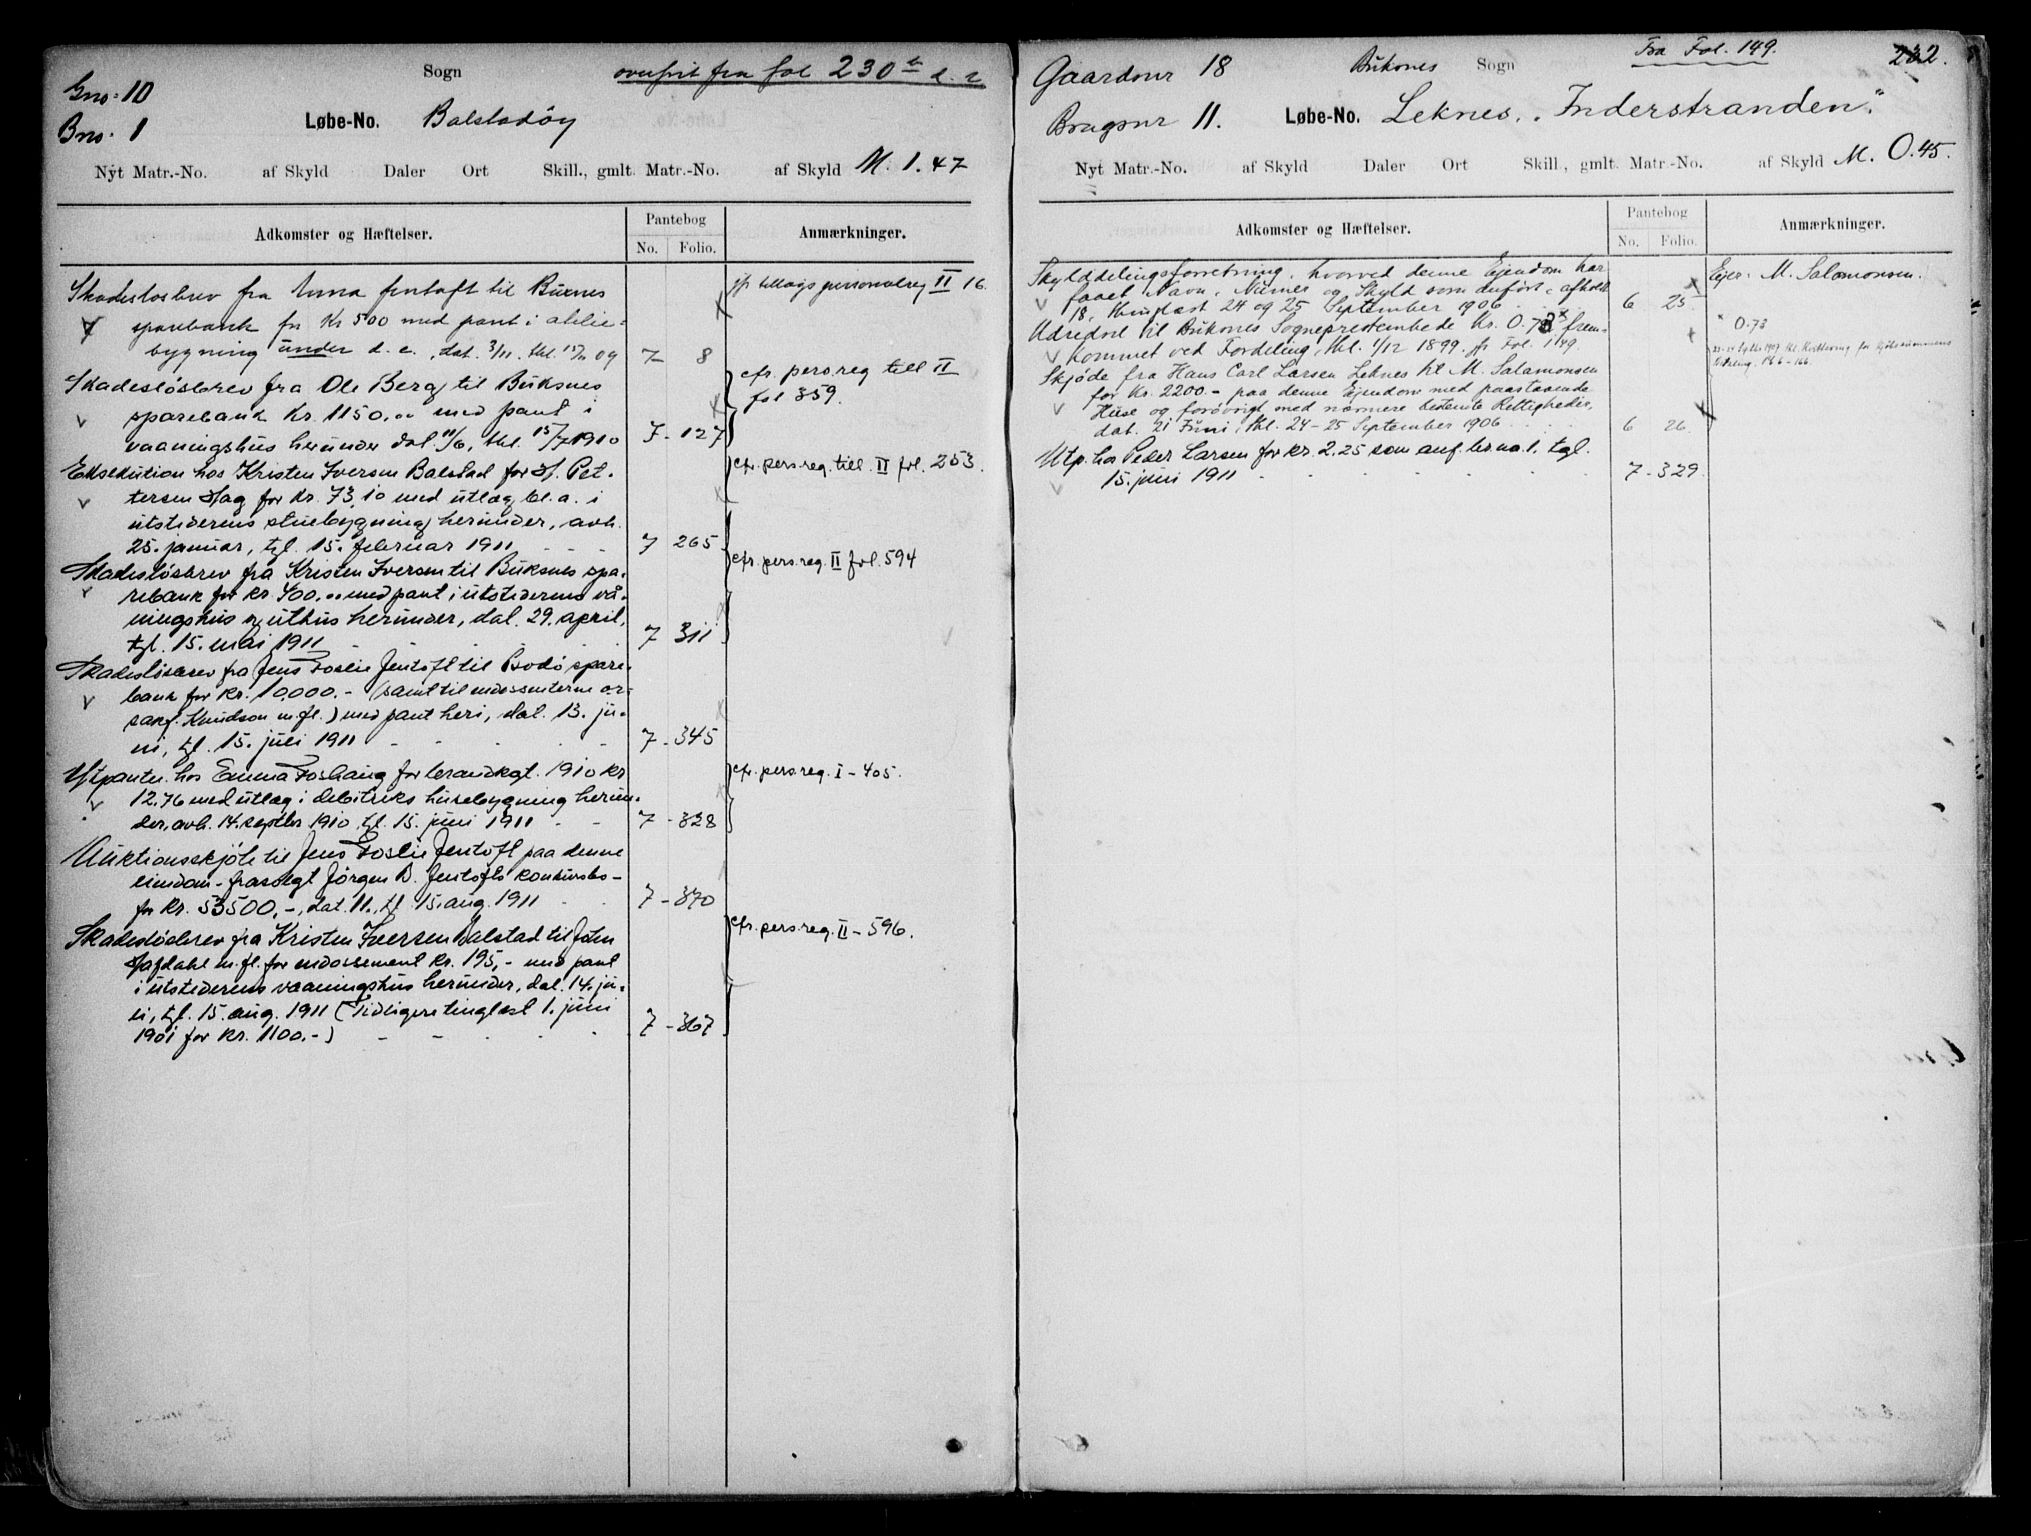 Gno. 10
Bno. 1
Sogn
fra fol 230 b d. r
Løbe-No. Balstadöy
Nyt Matr.-No. af Skyld Daler Ort Skill., gmlt. Matr.-No. af Skyld M. 1.47
Adkomster og Hæftelser. Pantebog No. Folio. Anmærkninger.
Skadesløsbrev fra Anna Jentoft til Buxnes
sparebank for Kr 500 med pant i
bygning under d. e., dat. 3/11, thl. 09 7 8
jfr tillægs personalreg II 16.
Skadesløsbrev fra Ole Berg til Buksnes
sparebank Kr. 1150.00 med pant i
vaaningshus herunder dat. 11/6, thl. 15/7 1910 7-127
cfr. pers.reg till II
fol 359.
Eksekution hos Kristen Iversen Balstad for H. Pet-
tersen Hag for kr. 73,10 med utlæg bl.a. i
utstederens stuebygning herunder, avh.
25. januar, tgl. 15. februar 1911 - - - 7 265
cfr. pers.reg. till. II fol. 253.
Skadesløsbrev fra Kristen Iversen til Buksnes spa-
rebank for kr. 400.00 med pant i utstederens vå-
ningshus og uthus herunder, dat. 29. april,
tgl. 15. mai 1911 7 311
cfr. pers.reg. II fol. 594
Skadesløsbrev fra Jens Foslie Jentoft til Bodö spare-
bank for kr. 10,000.- (samt til endossenterne or-
sakf. Knudson m.fl.) med pant heri, dat. 13. ju-
ni, tgl. 15. juli 1911 - - - - 7-345
Utpantn. hos Emma Foshaug for brandkgt. 1910 kr
12.76 med utlæg i debitriks husebygning herun-
der, avh. 14. septbr 1910, tgl. 15. juni 1911 - - 7-328
cfr. pers.reg. I-405.
Auktionsskjöte til Jens Foslie Jentoft paa denne
eiendom - frasolgt Jörgen B. Jentofts konkursbo -
for kr. 53500,-, dat. 11., tgl. 15. aug. 1911 - - 7-370
Skadesløsbrev fra Kristen Iversen Balstad til John
Hafdahl m.fl. for endossement kr. 195,- med pant
i utstederens vaaningshus herunder, dat. 14. ju-
ni, tgl. 15. aug. 1911 (Tidligere tinglæst 1. juni
1901 for kr. 1100.-) - - - - 7-367
cfr. pers.reg. II-596.
Gaardsnr 18 Buksnes Sogn Fra Fol. 149. 232.
Brugsnr 11. Løbe-No. Leknes, "Inderstranden".
Nyt Matr.-No. af Skyld Daler Ort Skill., gmlt. Matr.-No. af Skyld M. 0.45.
Adkomster og Hæftelser. Pantebog No. Folio. Anmærkninger.
Skylddelingsforretning, hvorved denne Ejendom har
faaet Navn, Numer og Skyld som anført, afholdt
18, thinglæst 24 og 25 September 1906 6 25
Ejer: M. Salomonsen.
Udredsel til Buksnes Sognepræstembede Kr. 0.73 x frem-
kommet ved Fordeling, thl. 1/12 1899, jfr Fol. 149.
x 0.73
Skjøde fra Hans Carl Larsen Leknes til M. Salamonsen
for Kr. 2200.- paa denne Ejendom med paastaaende
Huse og forøvrigt med nærmere bestemte Rettigheder,
dat. 21 Juni, thl. 24-25 September 1906 6 26
Utp. hos Peder Larsen for kr. 2.25 som anf. br.no. 1, tgl.
15. juni 1911 - - - - 7-329